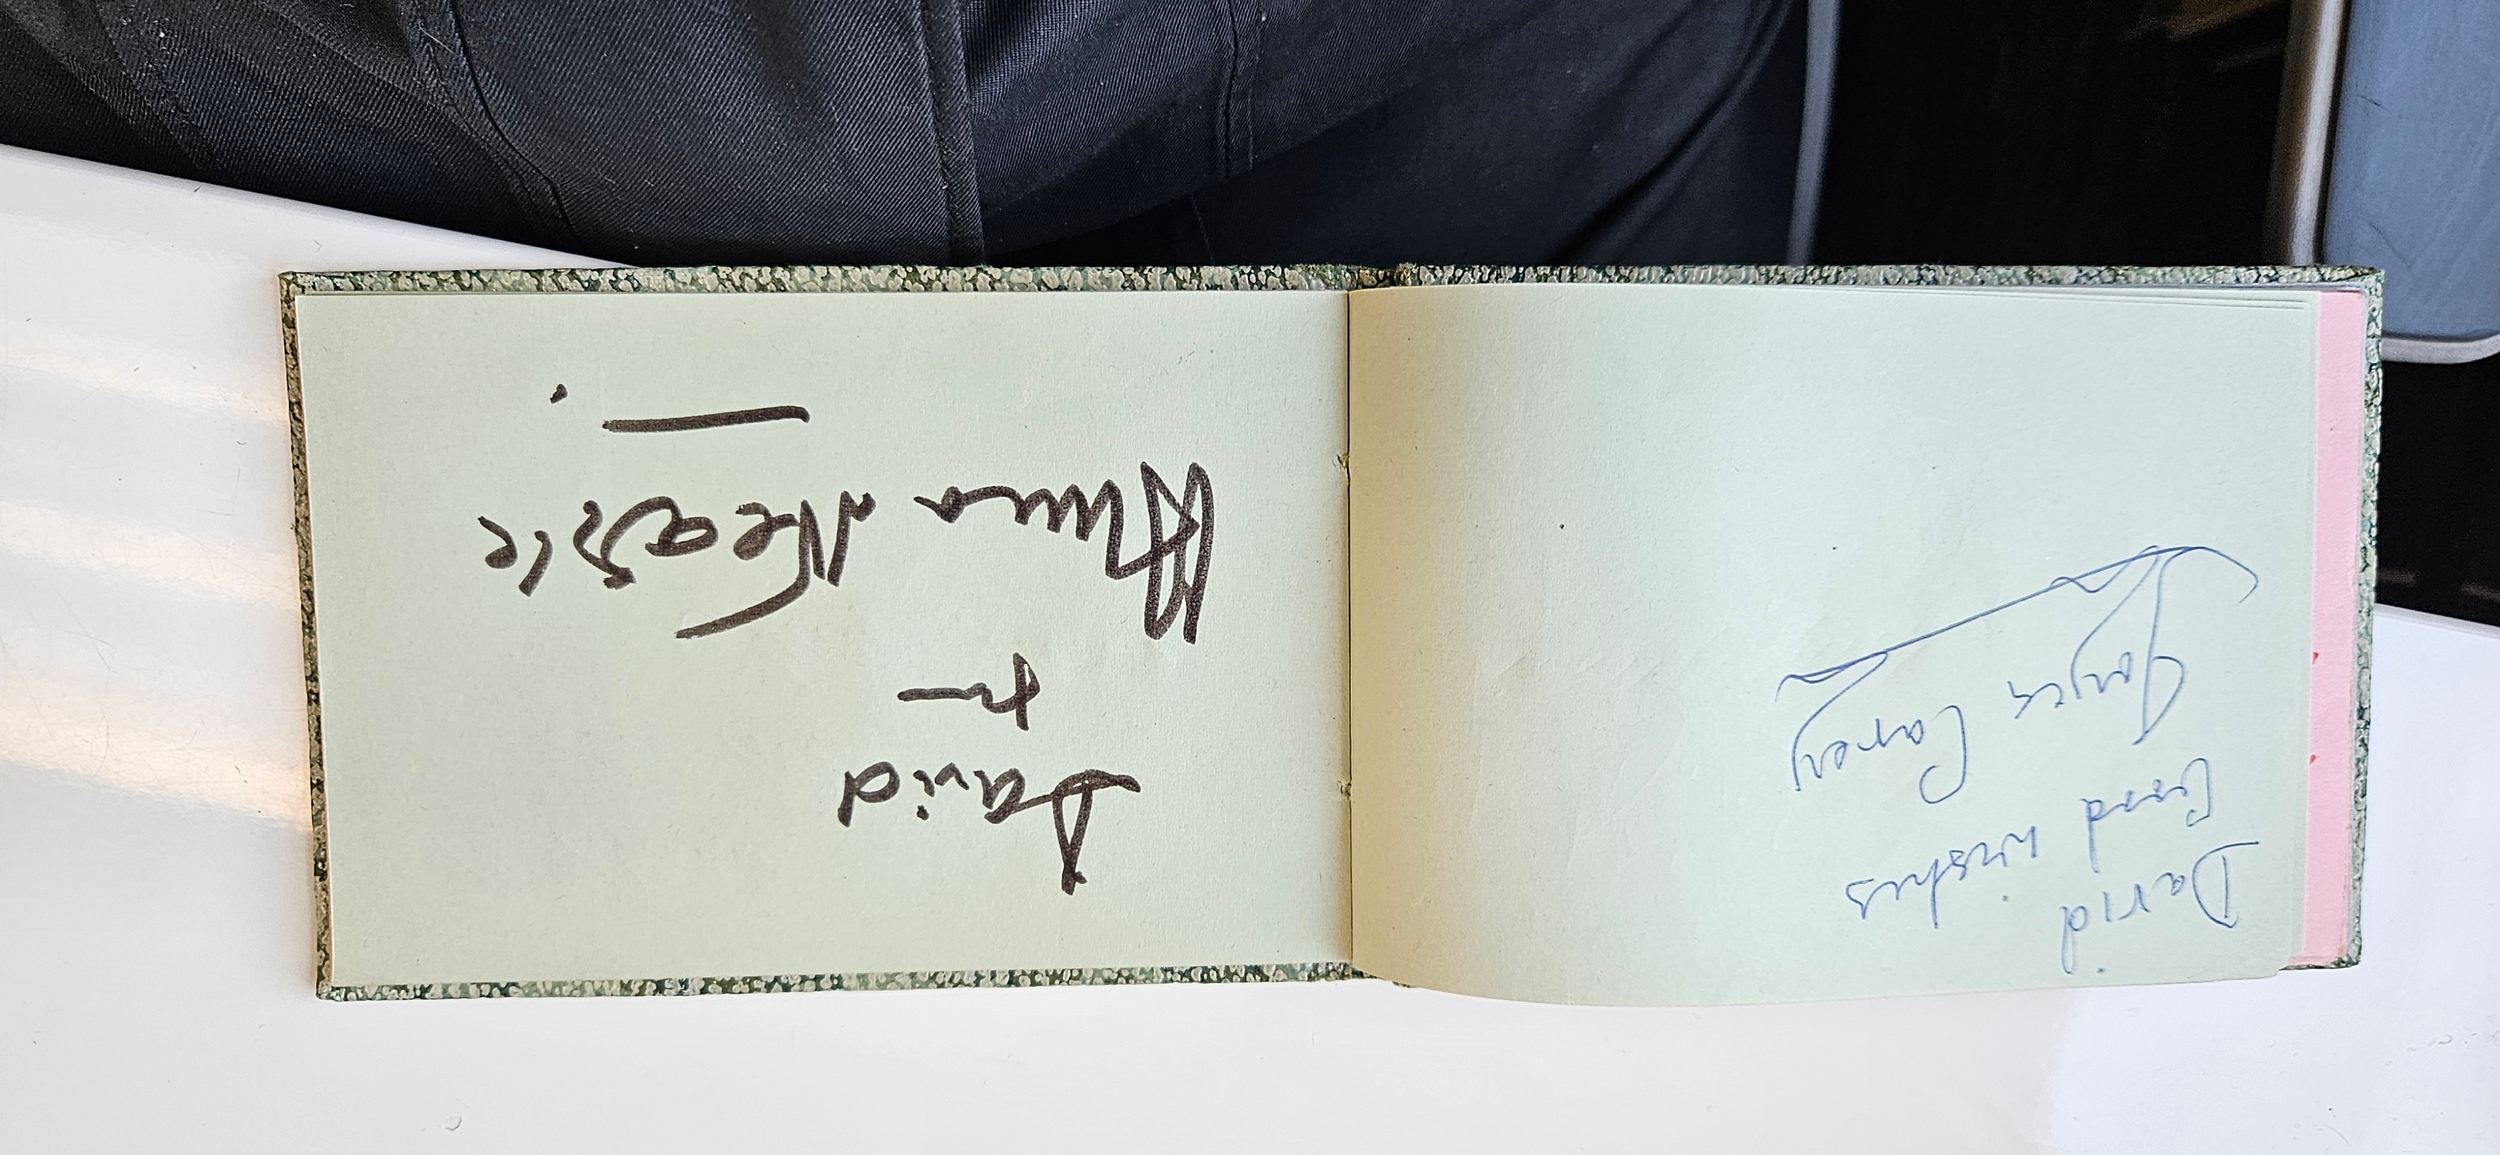 David
Good wishes
Joyce Carey
David
Anna Neagle